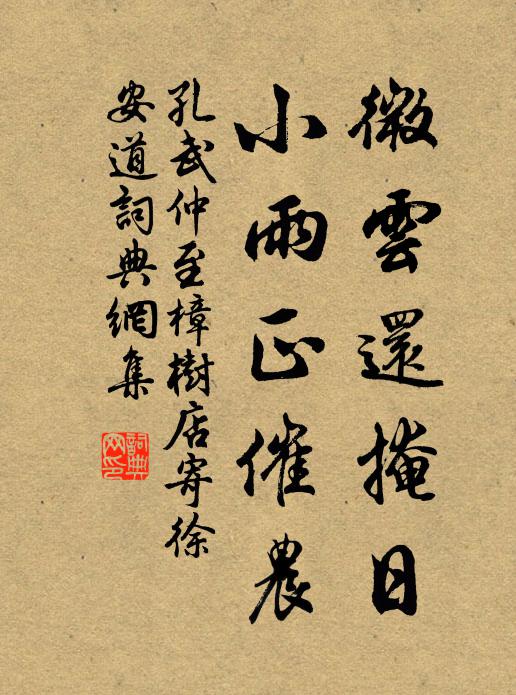 微雲還掩日
小雨正催農
孔武仲至樟樹店寄徐
安道詞典網集
詞典
网印